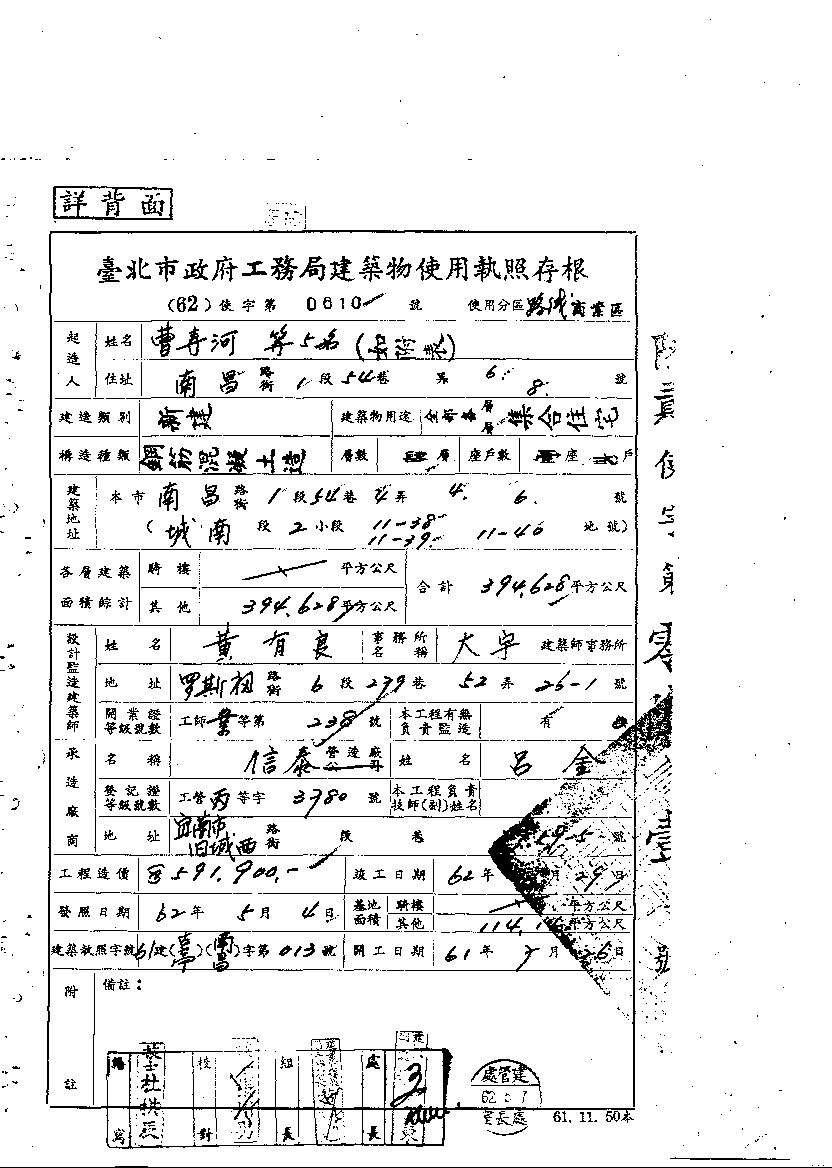 詳背面
臺北市政府工務局建築物使用執照存根
(62)使字第 0610 號 使用分區 路線商業區
起造人 姓名 曹寿河 等5名 (如附表)
住址 南昌路街 1段 54巷 弄 6. 8. 號
建造類別 新建 建築物用途 全部各層層 集合住宅
構造種類 鋼筋混凝土造 層數 層 座戶數 座 戶
建築地址 本市 南昌路街 1段 54巷 4弄 4. 6. 號
(城南段 2小段 11-38 11-39 11-40 地號)
各層建築面積綜計 騎樓 平方公尺 合計 394.628平方公尺
其他 394.628平方公尺
設計監造建築師 姓名 黃有良 事務所名稱 大宇 建築師事務所
地址 罗斯福路街 6段 239巷 52弄 26-1號
開業證等級號數 工師業等第 238號 本工程有無負責監造 有
承造廠商 名稱 信泰營造廠公司 姓名 呂金
登記證等級號數 工管丙等字 3780號 本工程負責技師(副)姓名
地址 宜蘭市旧城西路街 段 巷 59-5號
工程造價 591,900.- 竣工日期 62年 月29日
發照日期 62年 5月 4日 基地面積 騎樓 平方公尺
其他 114. 平方公尺
建築執照字號 61建( )( )字第013號 開工日期 61年 月26日
附註 備註：
繕寫 校對 組長 處長
建管處
62 5 7
處長室
61.11.50本